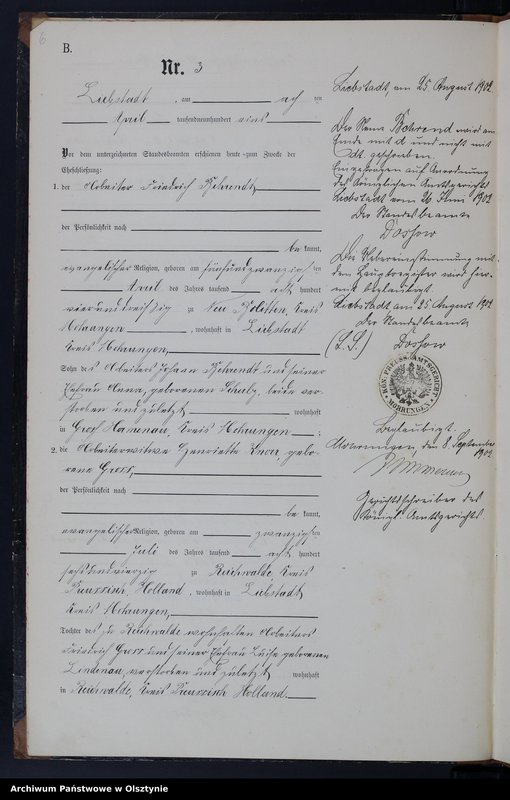 6
B.
Nr. 3
Liebstadt, am acht ten
April tausendneunhundert eins
Vor dem unterzeichneten Standesbeamten erschienen heute zum Zwecke der
Eheschließung:
1. der Arbeiter Friedrich Behrendt,
der Persönlichkeit nach
be kannt,
evangelischer Religion, geboren am fünfundzwanzig sten
April des Jahres tausend acht hundert
vierunddreißig zu Neu Bolitten, Kreis
Mohrungen, wohnhaft in Liebstadt
Kreis Mohrungen,
Sohn des Arbeiters Johann Behrendt und seiner
Ehefrau Anna, geborenen Schulz, beide ver-
storben und zuletzt wohnhaft
in Groß Hanswalde, Kreis Mohrungen;
2. die Arbeiterwitwe Henriette Knorr, gebo-
rene Gross,
der Persönlichkeit nach
be kannt,
evangelischer Religion, geboren am zwanzig sten
Juli des Jahres tausend acht hundert
sechsundvierzig zu Reichwalde, Kreis
Preussisch Holland, wohnhaft in Liebstadt
Kreis Mohrungen,
Tochter des zu Reichwalde wohnhaften Arbeiters
Friedrich Gross und seiner Ehefrau Luise geborenen
Lindenau, verstorben und zuletzt wohnhaft
in Reichwalde, Kreis Preussisch Holland.
Liebstadt, am 25. August 1902.
Der Name Behrend wird am
Ende mit d und nicht mit
dt geschrieben.
Eingetragen auf Anordnung
des Königlichen Amtsgerichts
Liebstadt vom 26. Juni 1902
Der Standesbeamte
Dossow
Die Uebereinstimmung mit
dem Hauptregister wird hier-
mit beglaubigt.
Liebstadt am 25. August 1902
Der Standesbeamte
(L.S.) Dossow
KÖN. PREUSS. AMTSGERICHT
MOHRUNGEN
Beglaubigt.
Mohrungen, den 8. September
1902
Gerichtsschreiber des
Königl. Amtsgerichts
Archiwum Państwowe w Olsztynie